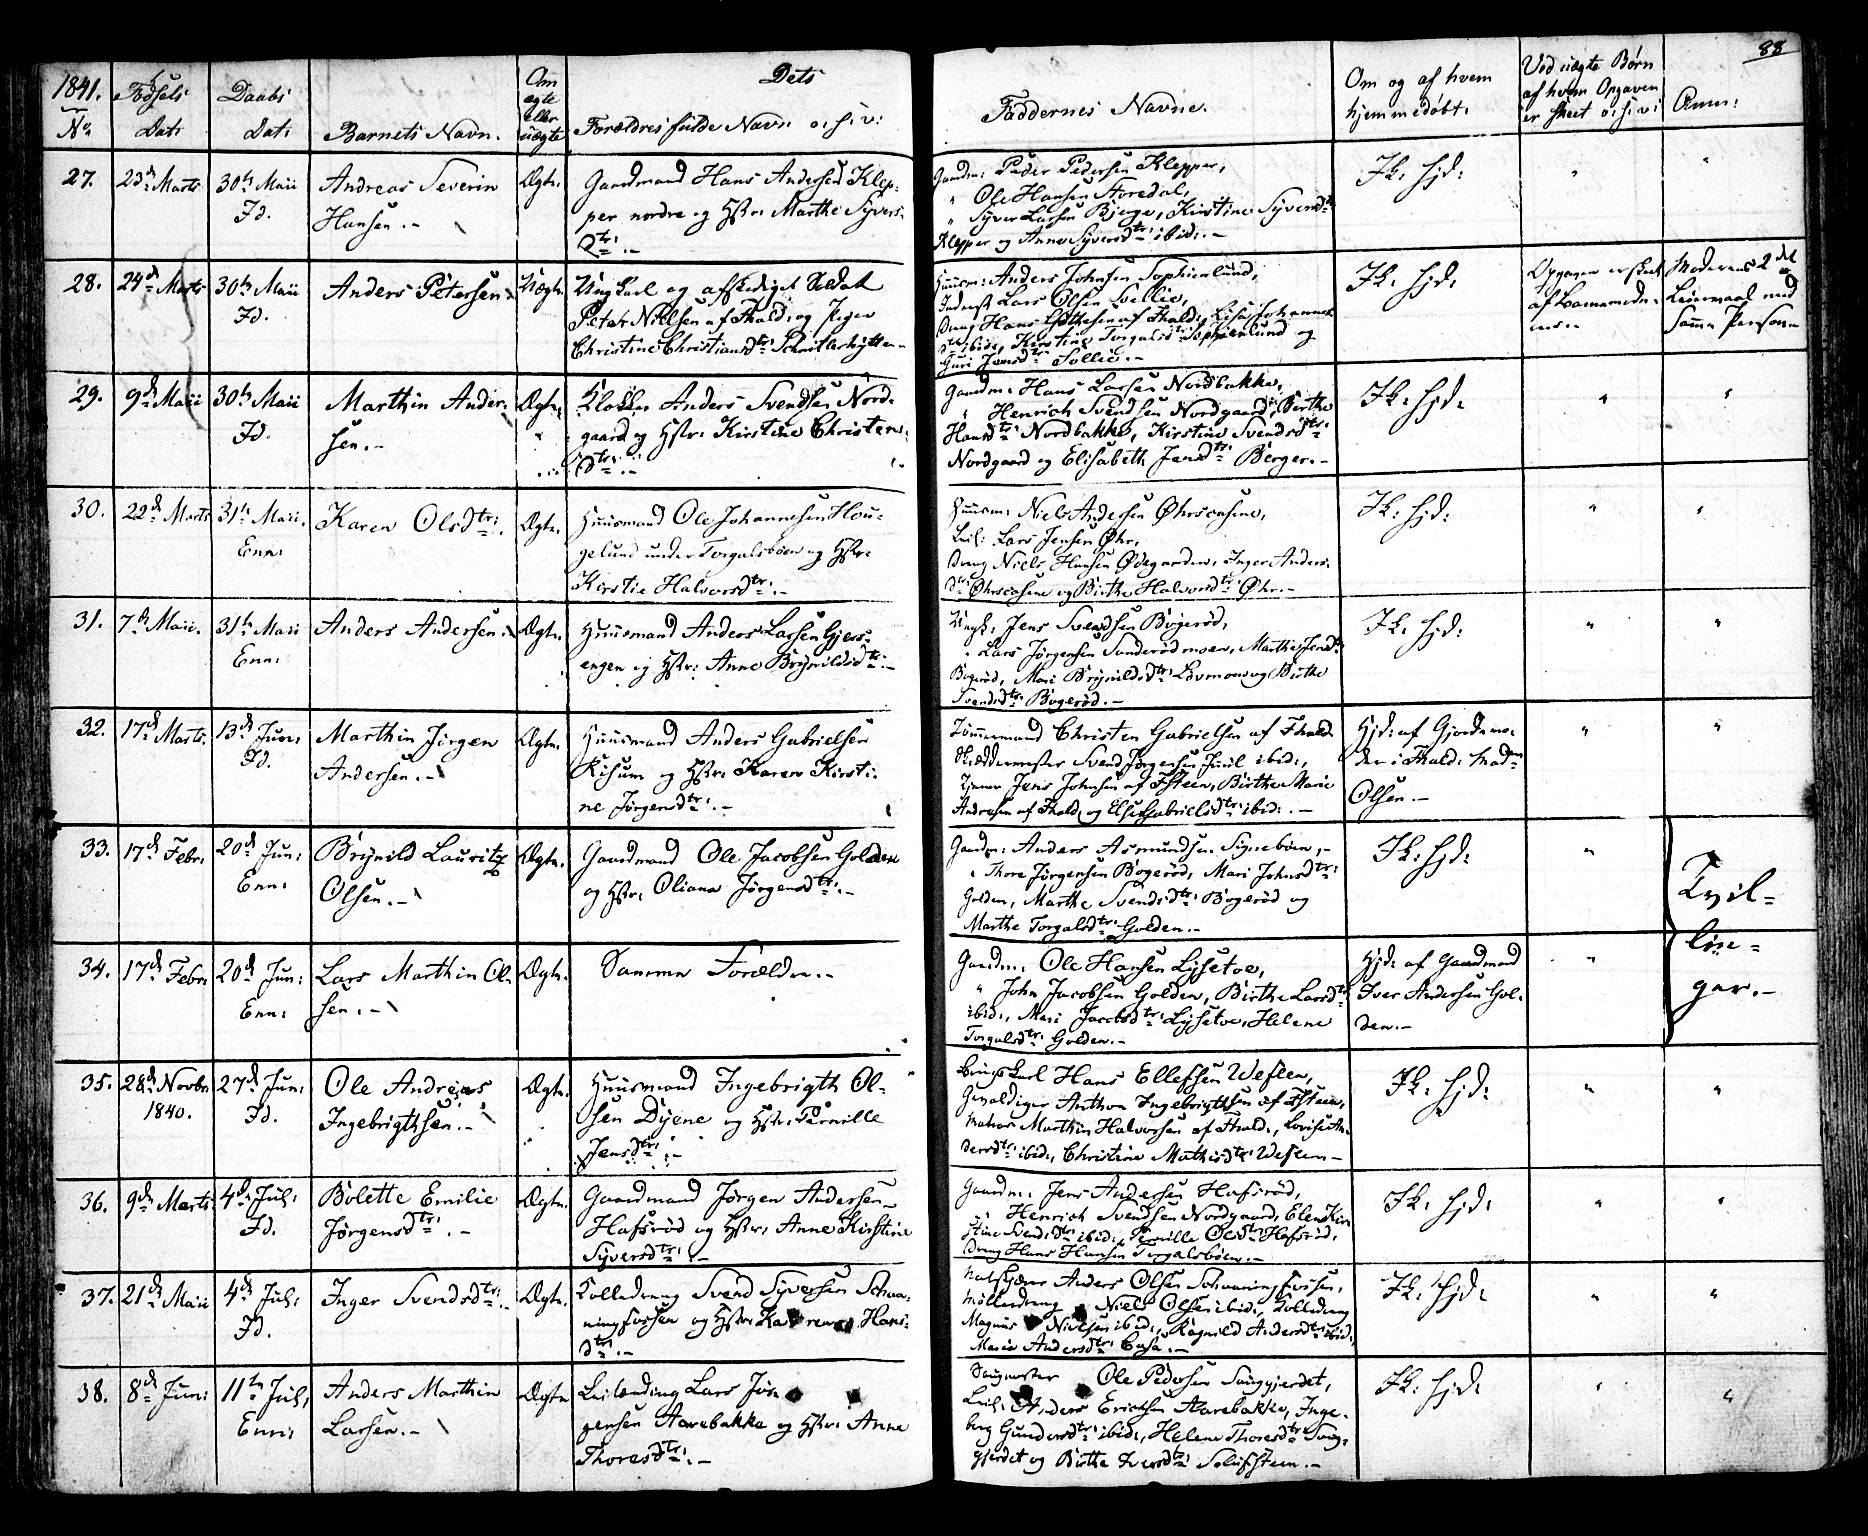 88
1841. Fødsels Daabs Om Dets
No Dat: Dat: Barnets Navn. ægte Eller uægte Forældres fulde Navn o: s: v:
Faddernes Navne. Om og af hvem hjemmedøbt. Ved uægte Børn af hvem Opgaven er skeet o: s: v: Anm:
27. 23d Marts 30te Maii Andreas Severin Ægte. Gaardmand Hans Andersen Klep-
Id. Hansen.- per nordre og Hstr: Marthe Syvers-
Dtr:.-
Gaardm: Peder Pedersen Klepper,
" Ole Hansen Aaredal,
" Syver Larsen Bjerge, Kirstine Syversdtr:
Klepper og Anne Syversdtr: ibid:.-
Ik: hjd: " "
28. 24d Marts 30te Maii Anders Petersen Uægte. Ungkarl og afskediget Soldat
Id. Peter Nielsen af Fhald: og Pigen
Christine Christiansdtr:
Huusm: Anders Johnsen Sophienlund,
Inderst Lars Olsen Sollie,
Dreng Hans af Fhald:, Lise Johannes-
dtr: ibid:, Kirstine Torgalsdtr: Sophienlund og
Guri Jensdtr: Sollie.-
Ik: hjd: Opgaven er skeet Moderens 2det
af Barnemode- Leiermaal med
ren.- Samme Person
29. 9de Maii 30te Maii Marthin Ander- Ægte. Klokker Anders Svendsen Nord-
Id. sen.- gaard og Hstr: Kirstine Christens-
Dtr:.-
Gaardm: Hans Larsen Nordbakke,
" Henrich Svendsen Nordgaard, Birthe
Hansdtr: Nordbakke, Kirstine Svendsdtr:
Nordgaard og Elisabeth Jensdtr: Berger.-
Ik: hjd: " "
30. 22d Marts 31te Maii. Karen Olsdtr:. Ægte. Huusmand Ole Johannesen Hou-
Enn: gelund under Torgalsbøen og Hstr:
Kirstie Halvorsdtr:.-
Huusm: Niels Andersen Øhrscasene,
Leil: Lars Jensen Øhr,
Dreng Niels Hansen Ødegaarden, Inger Anders-
dtr: Øhrscasene og Birthe Halvorsdtr: Øhr.-
Ik: hjd: " "
31. 7de Maii. 31te Maii Anders Andersen. Ægte. Huusmand Anders Larsen Gjers-
Enn: engen og Hstr: Anne Brynildsdtr:.-
Ungk: Jens Svendsen Bøgerød,
" Lars Jørgensen Sonderødmoen, Marthe Jensdtr:
Bøgerød, Mari Brynildsdtr: og Birthe
Svendsdtr: Bøgerød.-
Ik: hjd: " "
32. 17de Marts. 13de Jun: Marthin Jørgen Ægte. Huusmand Anders Gabrielsen
Id. Andersen.- Risum og Hstr: Karen Kirsti-
ne Jørgensdtr:.-
Tømmermand Christen Gabrielsen af Fhald
Skræddermester Svend Jørgensen Juul ibid:,
Tjener Jens Johnsen af Fsteen, Birthe Marie
Andresen af Fhald: og Else Gabrielsdtr: ibid:.-
Hjd: af Gjordemo-
der i Fhald: Mad
Olsen.- " "
33. 17de Febr: 20de Jun: Brynild Lauritz Ægte. Gaardmand Ole Jacobsen Golden
Enn: Olsen.- og Hstr: Oliana Jørgensdtr:.-
Gaardm: Anders Asmundsen Signebøen,-
" Thore Jørgensen Bøgerød, Mari Johnsdtr:
Golden, Marthe Svendsdtr: Bøgerød og
Marthe Torgalsdtr: Golden.-
Ik: hjd: " Tvil-
34. 17de Febr: 20de Jun: Lars Marthin Ol- Ægte. Samme Forældre.-
Enn: sen.-
Gaardm: Ole Hansen Lysetoe,
" John Jacobsen Golden, Birthe Larsdtr:
ibid:, Mari Jacobsdtr: Lysetoe, Helene
Torgalsdtr: Golden.-
Hjd: af Gaardmand
Iver Andersen Gol-
den.- " lin-
gar.-
35. 28de Novbr: 27de Jun: Ole Andreas Ægte. Huusmand Ingebrigth Ol-
1840. Id. Ingebrigthsen.- sen Dyene og Hstr: Pernille
Jensdtr:.-
Brugskarl Hans Ellefsen Weflen,
Gevaldiger Anthon Ingebrigtsen af Fsteen,
Matros Marthin Halvorsen af Fhald:, Lovise An-
dersdtr: ibid:, Christine Mathisdtr: Weflen.-
Ik: hjd: " "
36. 9de Marts 4de Jul: Bolette Emilie Ægte. Gaardmand Jørgen Andersen
Id. Jørgensdtr:.- Hafsrød og Hstr: Anne Kirstine
Syversdtr:.-
Gaardm: Jens Andersen Hafsrød,
" Henrich Svendsen Nordgaard, Elen Kir-
stine Svendsdtr: ibid:, Pernille Olsdtr: Hafsrød,
Dreng Hans Hansen Torgalsbøen.-
Ik: hjd: " "
37. 21de Maii 4de Jul: Inger Svendsdtr:. Ægte. Rolledreng Svend Syversen Schou-
Id. ningsfossen og Hstr: Karen Hans-
dtr:.-
Anders Olsen Schonningsfossen,
Mølledreng Niels Olsen ibid:, Rolledreng
Magnus Nielsen ibid:, Ragnild Andersdtr: ibid:,
Maria Andersdtr: Casa.-
Ik: hjd: " "
38. 8de Jun: 11te Jul: Anders Marthin Ægte Leilænding Lars Jør-
Enn: Larsen.- gensen Aarebakke og Hstr: Anne
Thoresdtr:.-
Saugmester Ole Pedersen Saugjerdet,
Leil: Anders Erichsen Aarebakke, Inge-
borg Gundersdtr: ibid:, Helene Thoresdtr: Saug-
gjerdet og Birthe Iversdtr:
Ik: hjd: " "